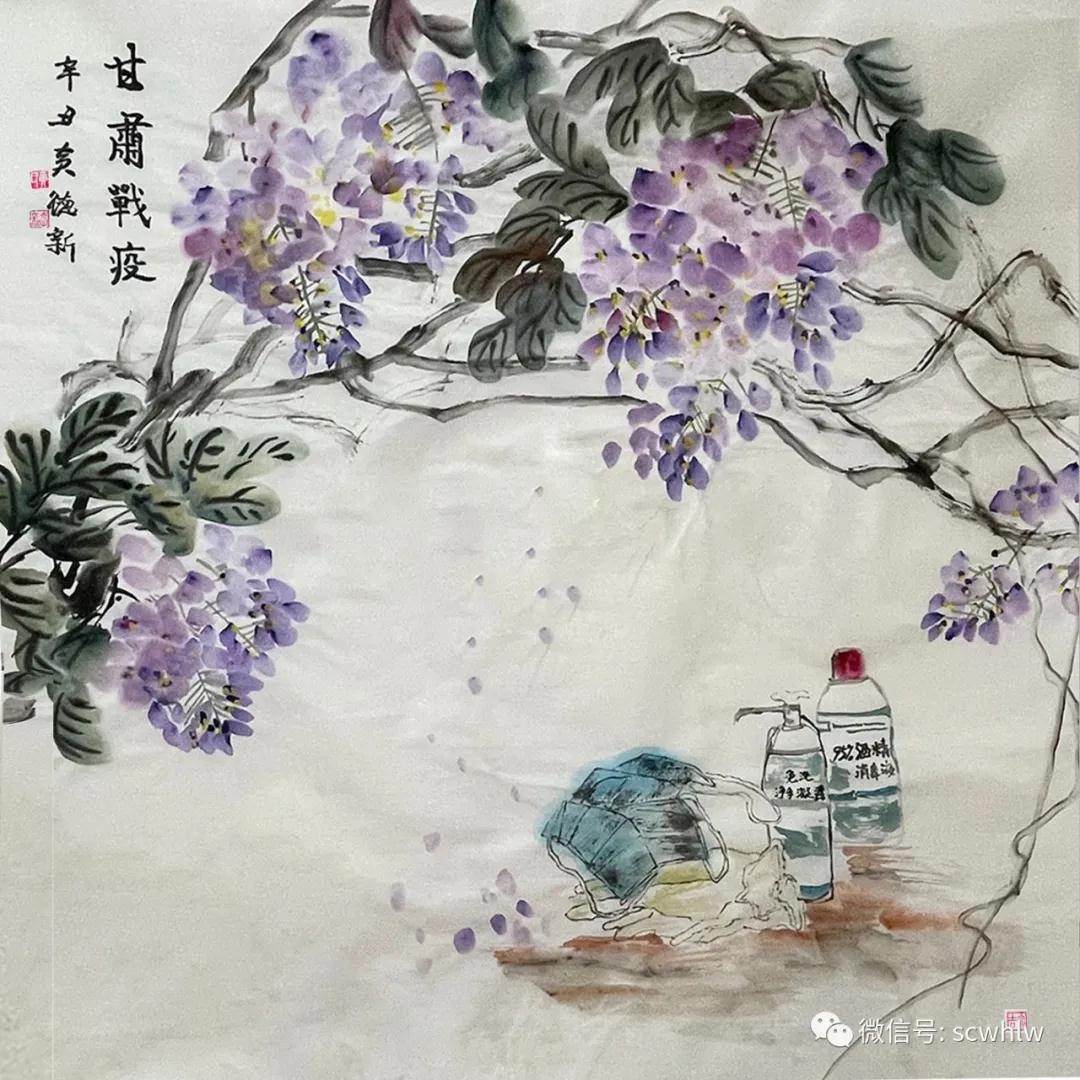 甘肅戰疫
辛丑黄德新
免洗
净手凝露
95%酒精
消毒液
微信号: scwhlw